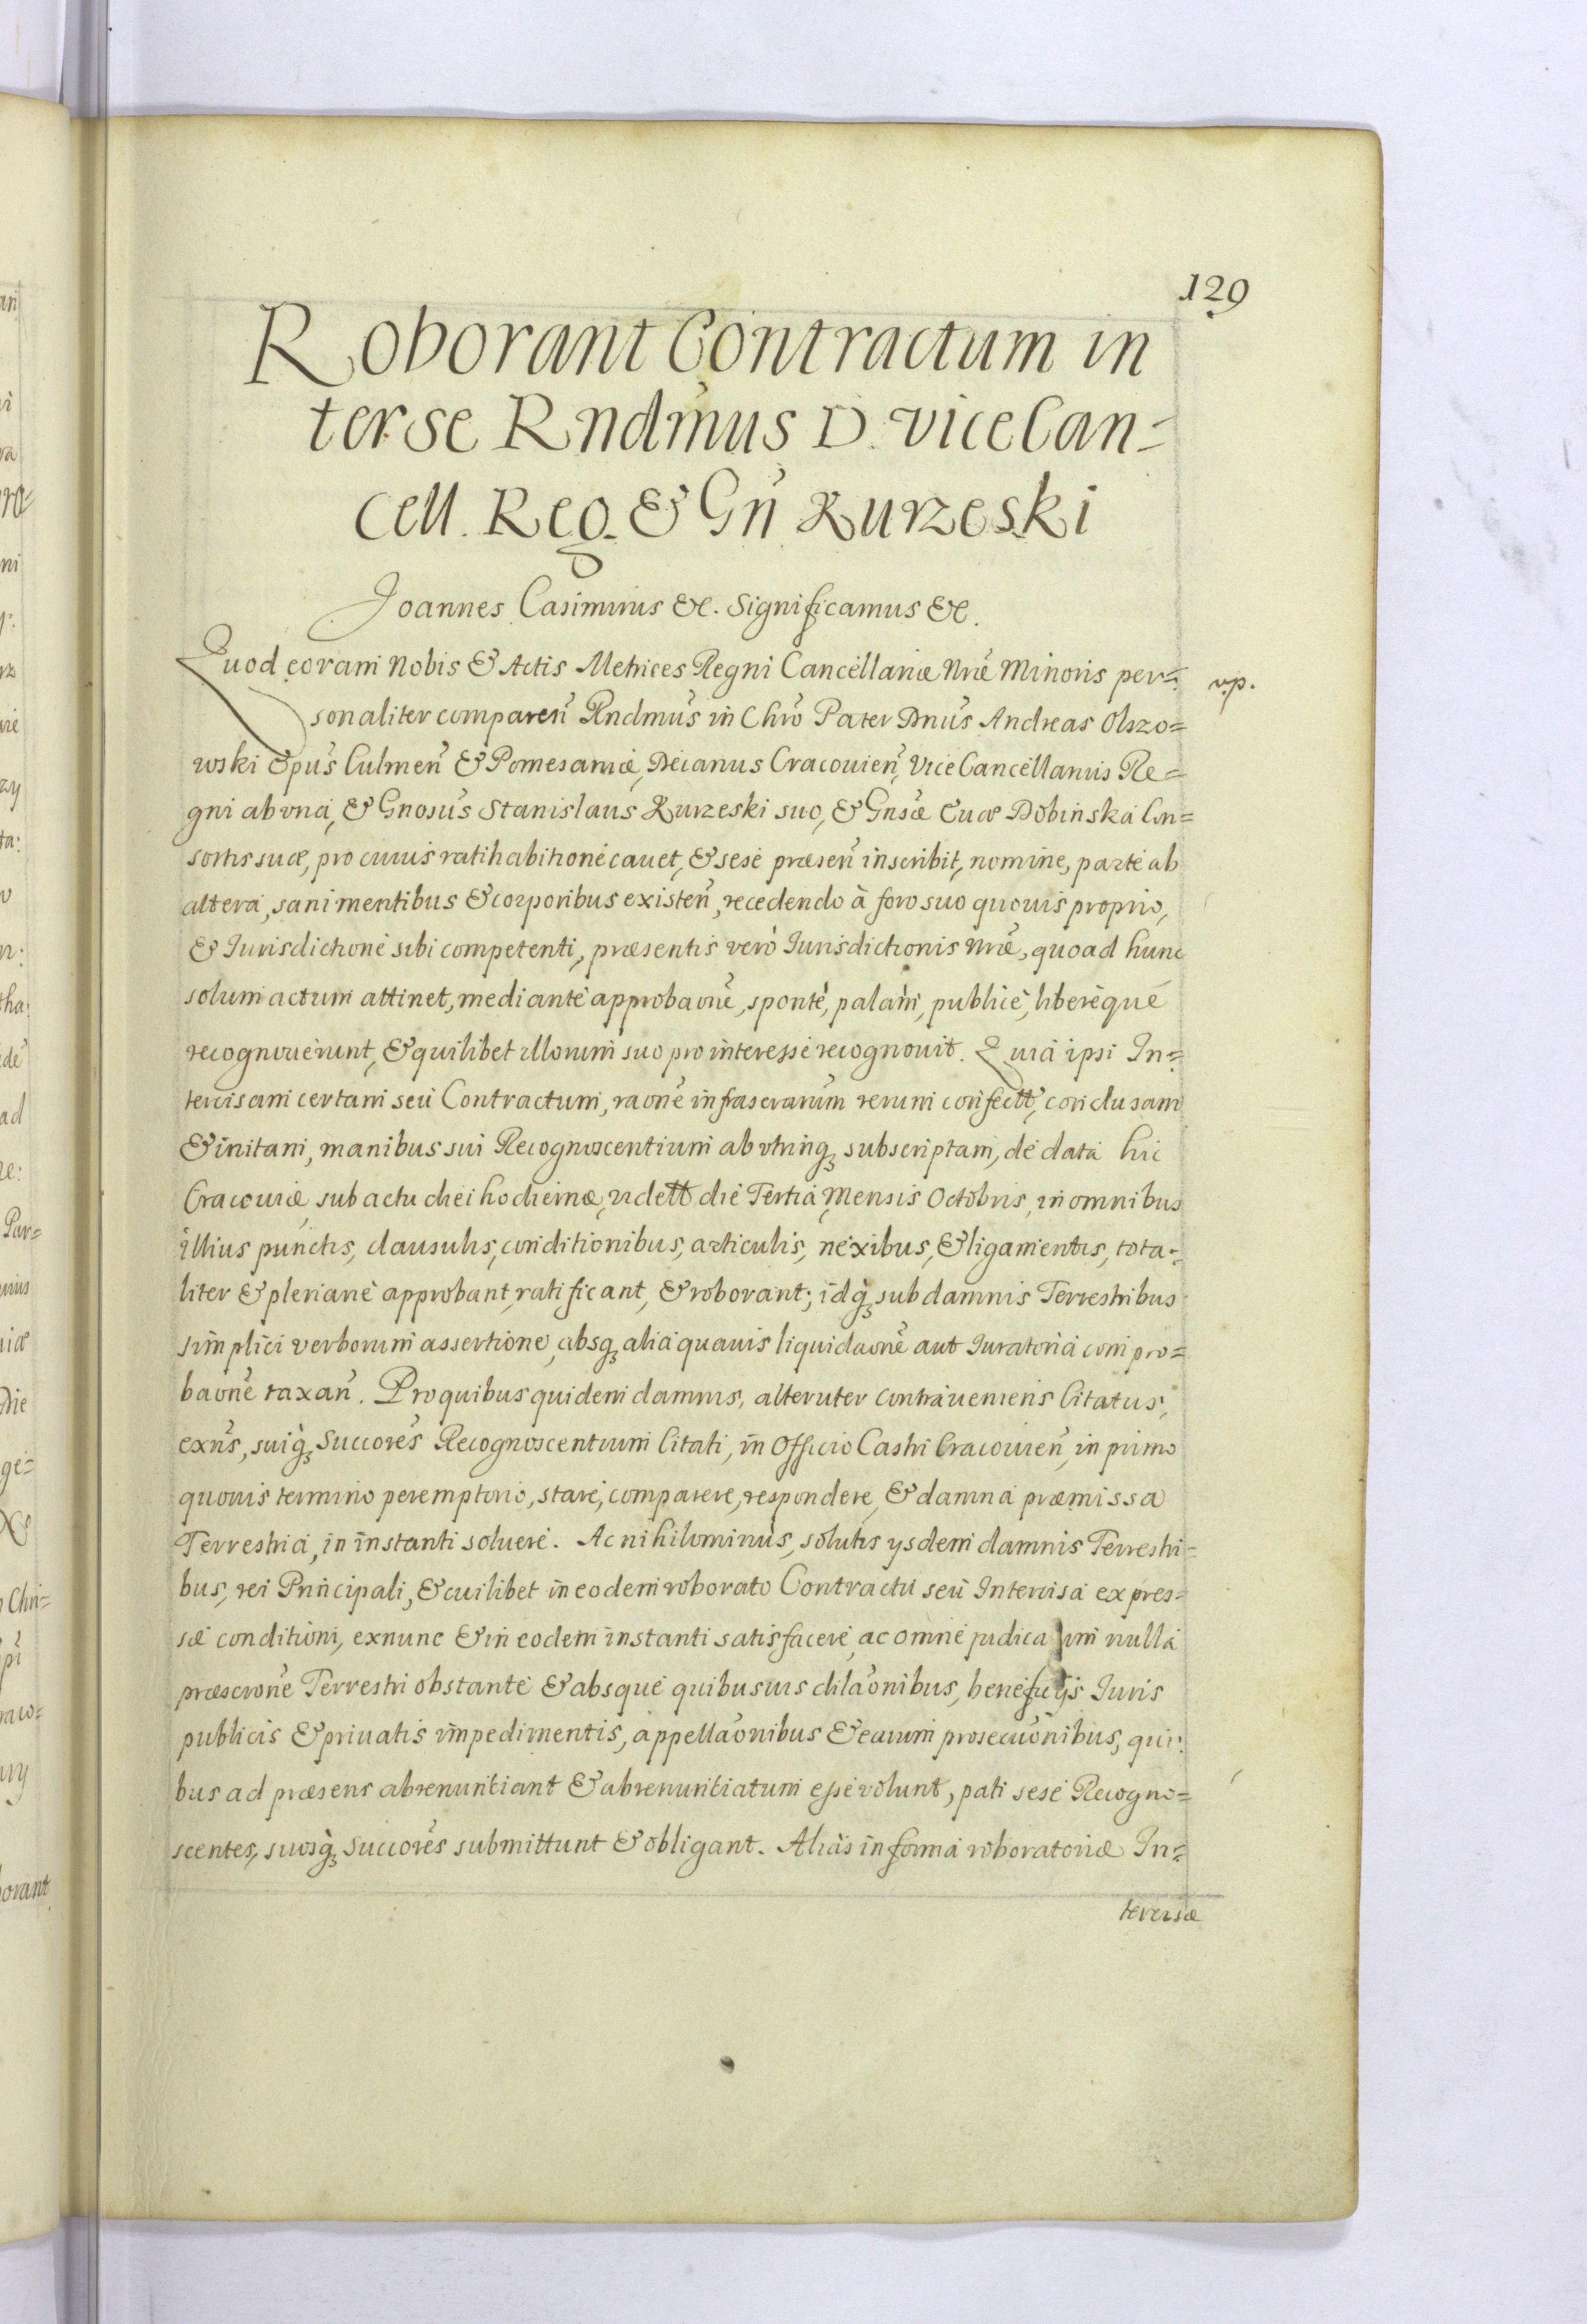 129
Roborant Contractum in
ter se Rndmus D. Vice Can=
cell. Reg. & Gn Kurzeski
Joannes Casimirus &c. Significamus &c.
Quod coram Nobis & Actis Metrices Regni Cancellariæ Nræ Minoris per= vp.
sonaliter comparen Rndmus in Chro Pater Dnus Andreas Olszo=
wski Epus Culmen & Pomesaniæ, Decanus Cracouien, Vice Cancellarius Re=
gni ab vna, & Gnosus Stanislaus Kurzeski suo, & Gnsæ Euæ Dobinska Con=
sortis suæ, pro cuius ratihabitione cauet, & sese præsen inscribit, nomine, parte ab
altera, sani mentibus & corporibus existen, recedendo à foro suo quouis proprio,
& Iurisdictione sibi competenti, præsentis verò Iurisdictionis Nræ, quoad hunc
solum actum attinet, mediante approbaone, sponte, palàm, publicè, liberèque
recognouerunt, & quilibet illorum suo pro interesse recognouit. Quia ipsi In=
tercisam certam seu Contractum, raone infrascrarum rerum confectt, conclusam
& initam, manibus sui Recognoscentium ab vtrinq3 subscriptam, de data hic
Cracouiæ sub actu diei hodiernæ, vidett die Tertia Mensis Octobris, in omnibus
illius punctis, clausulis, conditionibus, articulis, nexibus, & ligamentis, tota=
liter & plenariè approbant, ratificant, & roborant; idq3 sub damnis Terrestribus
simplici verborum assertione, absq3 alia quauis liquidaone aut Iuratoria compro=
baone taxan. Pro quibus quidem damnis, alteruter contraueniens Citatus,
exns, suiq3 Succores Recognoscentium Citati, in Officio Castri Cracouien, in primo
quouis termino peremptorio, stare, comparere, respondere, & damna præmissa
Terrestria, in instanti soluere. Ac nihilominus, solutis ysdem damnis Terrestri=
bus, rei Principali, & cuilibet in eodem roborato Contractu seu Intercisa expres=
sæ conditioni, exnunc & in eodem instanti satisfacere, ac omne judicatum nulla
præscrone Terrestri obstante & absque quibusuis dilaonibus, beneficijs Iuris
publicis & priuatis impedimentis, appellaonibus & earum prosecuonibus, qui=
bus ad præsens abrenuntiant & abrenuntiatum esse volunt, pati sese Recogno=
scentes, suosq3 Succores submittunt & obligant. Aliàs in forma roboratoriæ In=
tercisæ